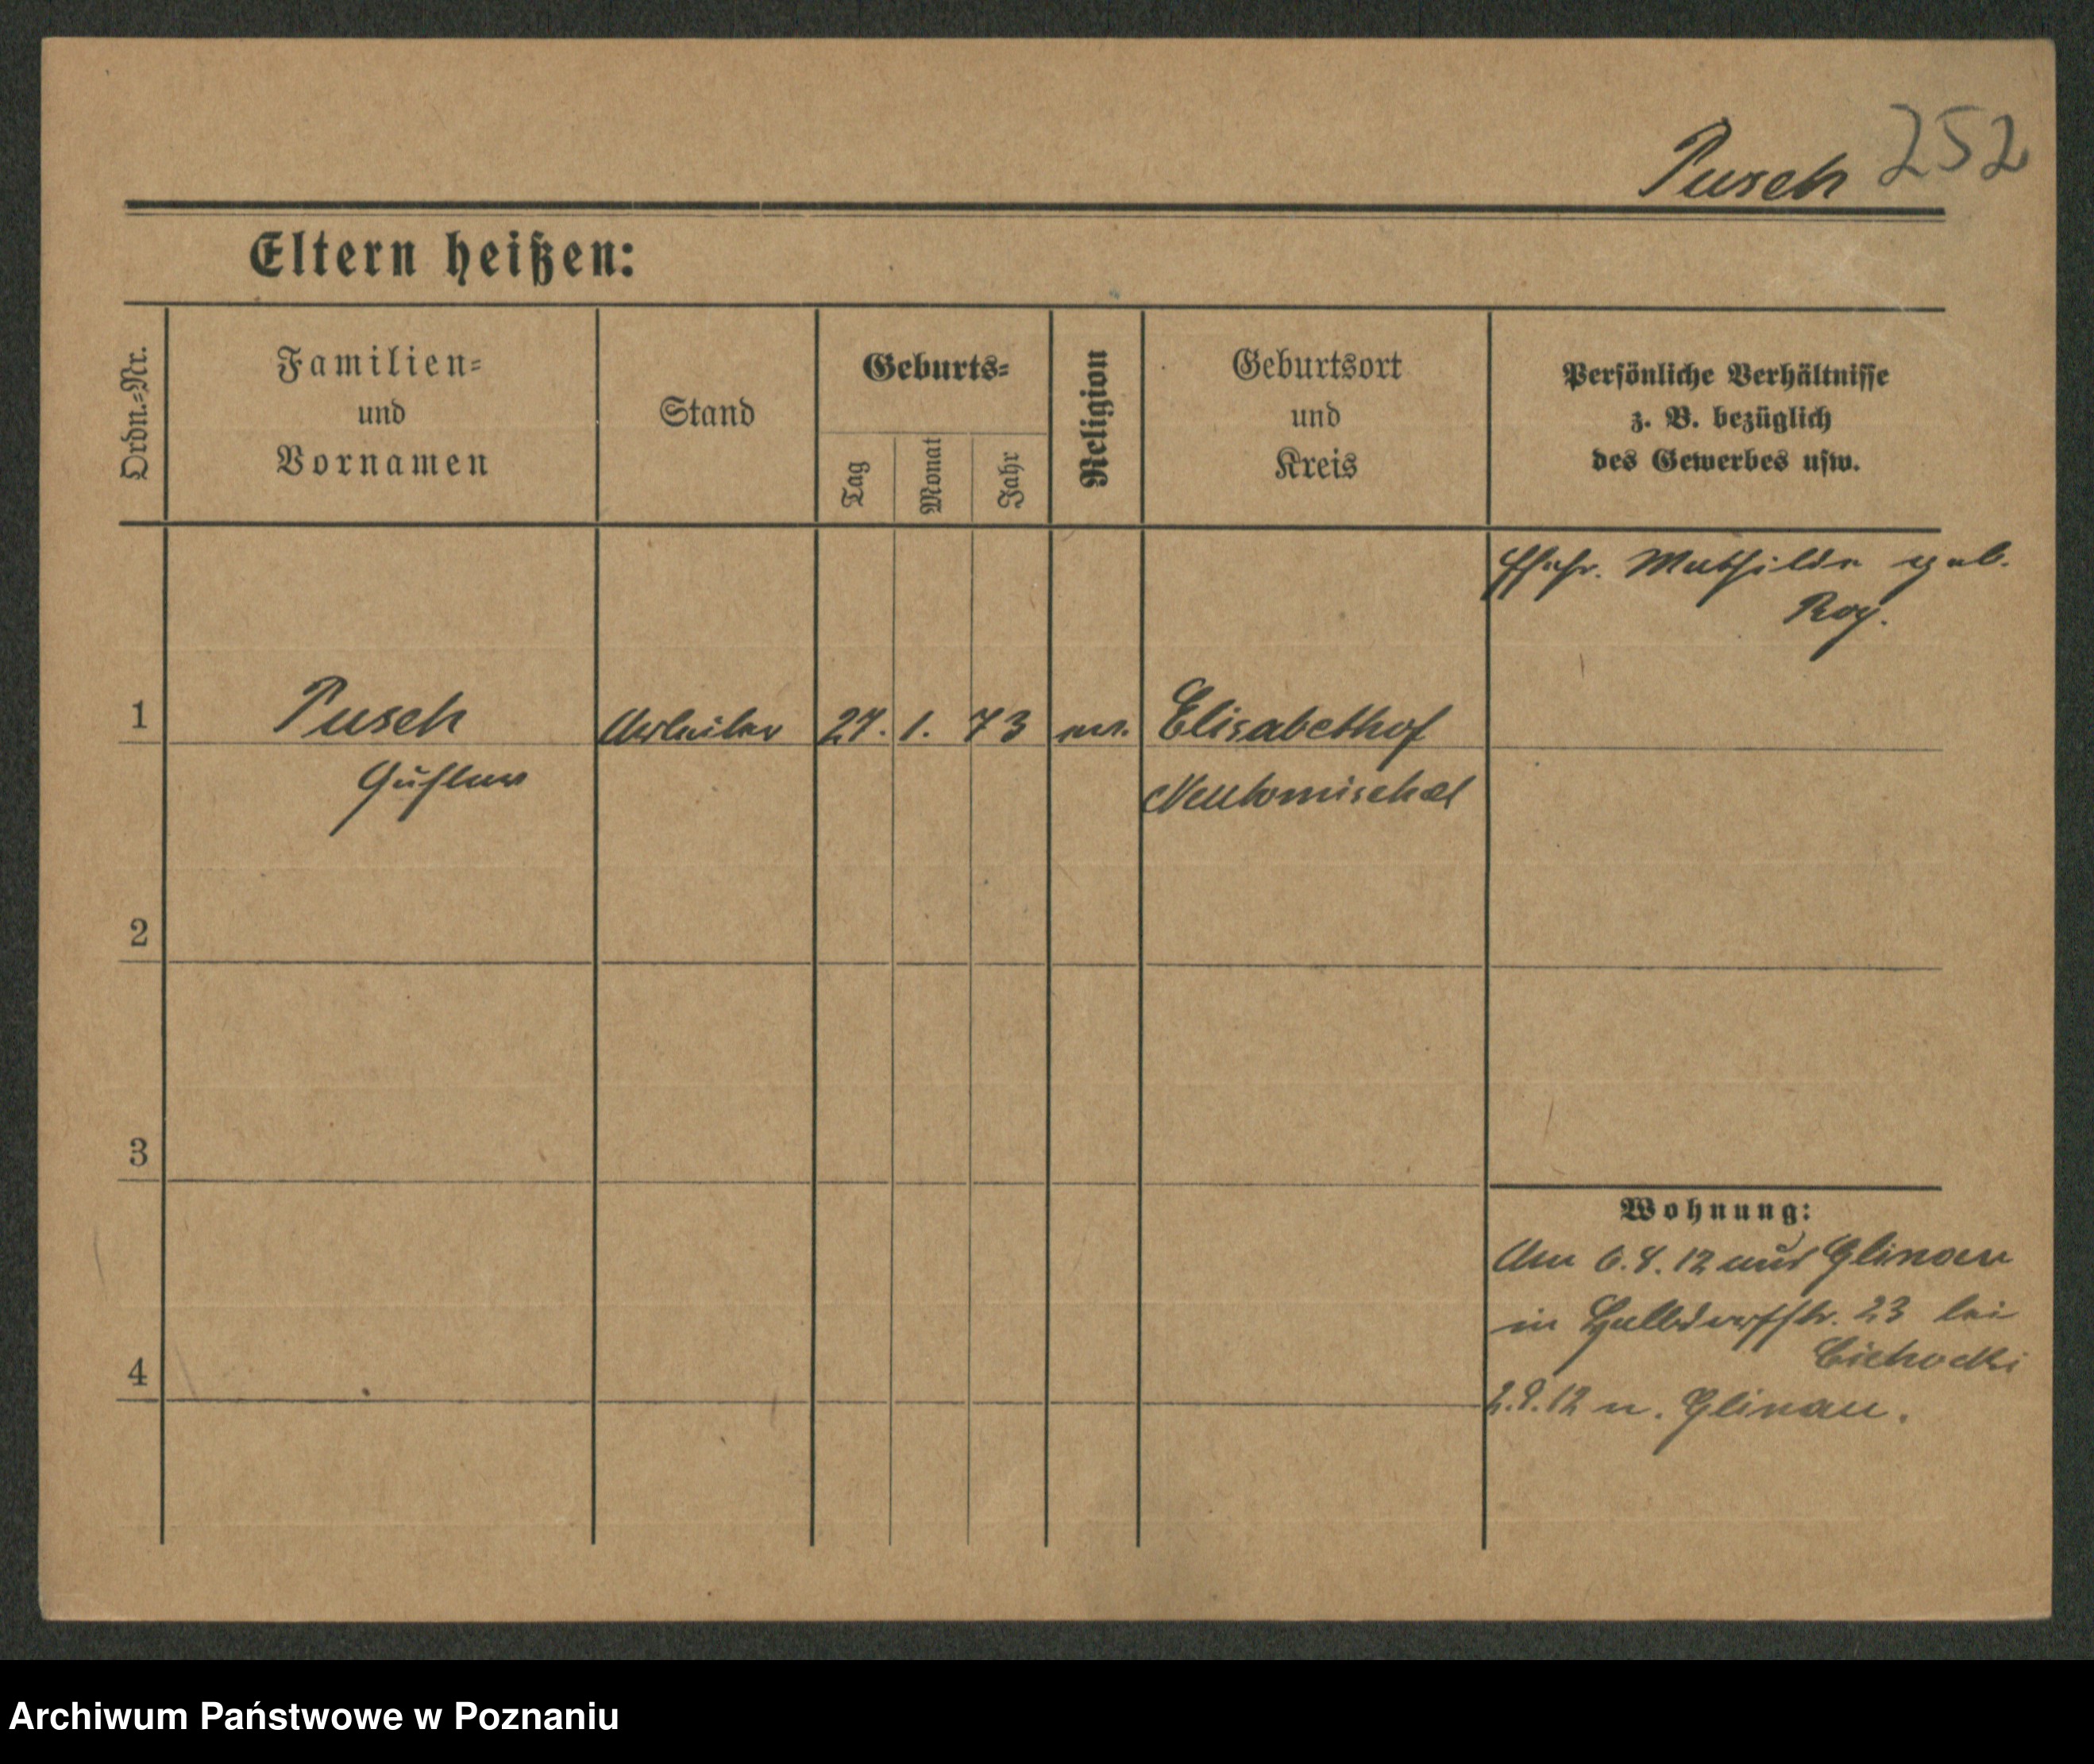 Pusch 252
Eltern heißen:
Ordn.-Nr.
Familien-
und
Vornamen
Stand
Geburts-
Tag
Monat
Jahr
Religion
Geburtsort
und
Kreis
Persönliche Verhältnisse
z. B. bezüglich
des Gewerbes usw.
Ehefr. Mathilde geb.
Roy.
1
Pusch
Arbeiter
27. 1. 73
ev.
Elisabethof
Gustav
Neutomischel
2
3
Wohnung:
Am 6.8.12 aus Glinau
in Halbdorfstr. 23 bei
Cichocki
4
n. Glinau.
Archiwum Państwowe w Poznaniu